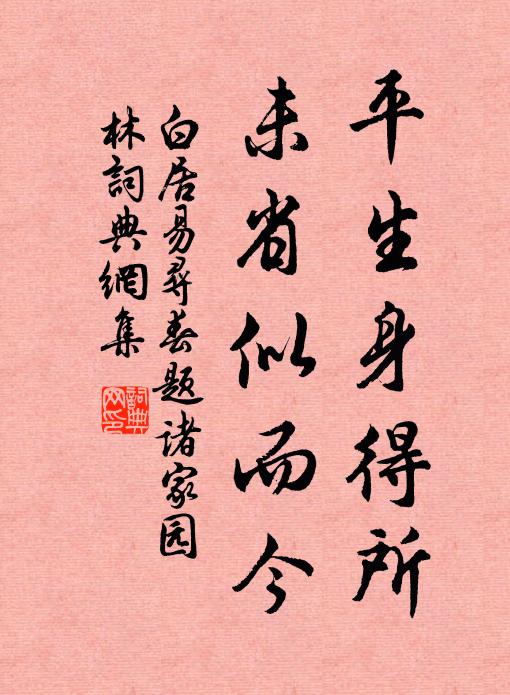 平生身得所
未省似而今
白居易尋春题诸家园
林詞典網集
詞典
网印